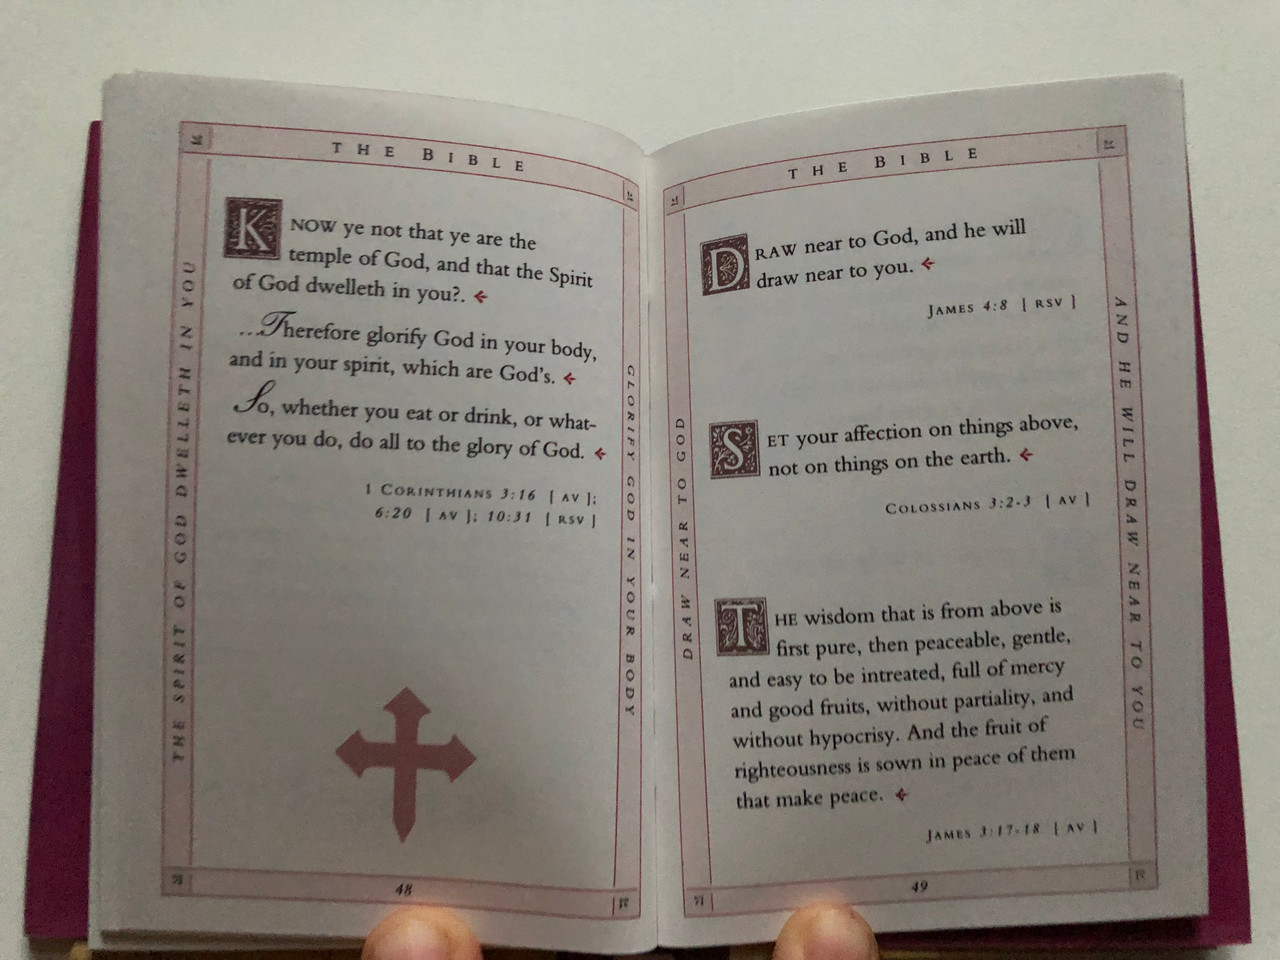 THE BIBLE
KNOW ye not that ye are the
temple of God, and that the Spirit
of God dwelleth in you?.
...Therefore glorify God in your body,
and in your spirit, which are God's.
So, whether you eat or drink, or what-
ever you do, do all to the glory of God.
1 CORINTHIANS 3:16 [ AV ];
6:20 [ AV ]; 10:31 [ RSV ]
THE SPIRIT OF GOD DWELLETH IN YOU
GLORIFY GOD IN YOUR BODY
48
THE BIBLE
DRAW near to God, and he will
draw near to you.
JAMES 4:8 [ RSV ]
SET your affection on things above,
not on things on the earth.
COLOSSIANS 3:2-3 [ AV ]
THE wisdom that is from above is
first pure, then peaceable, gentle,
and easy to be intreated, full of mercy
and good fruits, without partiality, and
without hypocrisy. And the fruit of
righteousness is sown in peace of them
that make peace.
JAMES 3:17-18 [ AV ]
DRAW NEAR TO GOD
AND HE WILL DRAW NEAR TO YOU
49